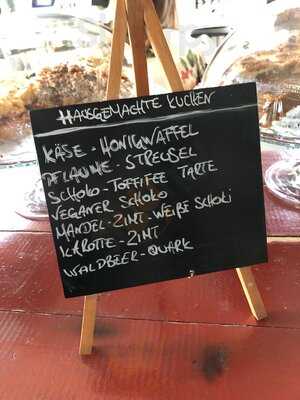 HAUSGEMACHTE KUCHEN
KÄSE - HONIGWAFFEL
PFLAUME - STREUSEL
SCHOKO - TOFFIFEE TARTE
VEGANER SCHOKO
MANDEL - ZIMT - WEIßE SCHOKI
KAROTTE - ZIMT
WALDBEER - QUARK